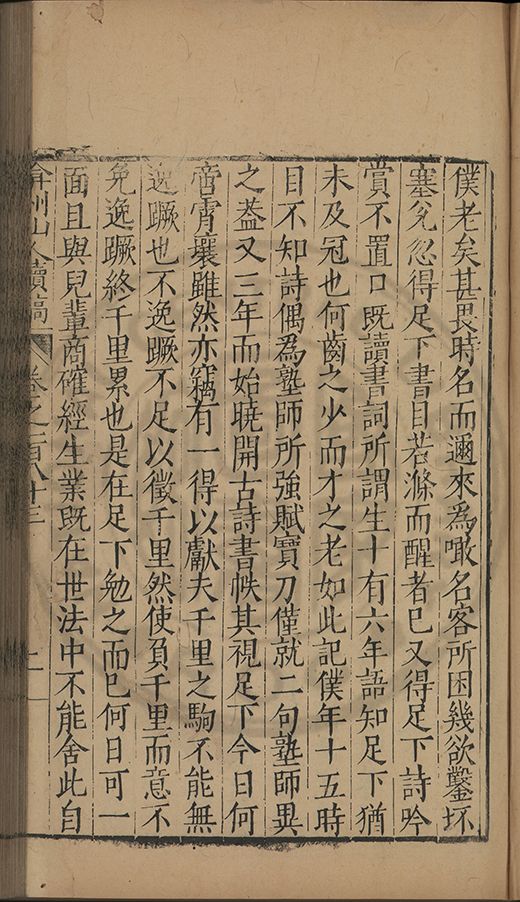 僕老矣甚畏時名而邇來為噉名客所困幾欲鑿坏
塞兊忽得足下書目若滌而醒者已又得足下詩吟
賞不置口既讀書詞所謂生十有六年語知足下猶
未及冠也何齒之少而才之老如此記僕年十五時
目不知詩偶為塾師所強賦寶刀僅就二句塾師異
之葢又三年而始曉開古詩書帙其視足下今日何
啻霄壤雖然亦竊有一得以獻夫千里之駒不能無
逸蹶也不逸蹶不足以徵千里然使負千里而意不
免逸蹶終千里累也是在足下勉之而已何日可一
面且與兒輩商確經生業既在世法中不能舍此自
弇州山人續稿 卷之一百八十三